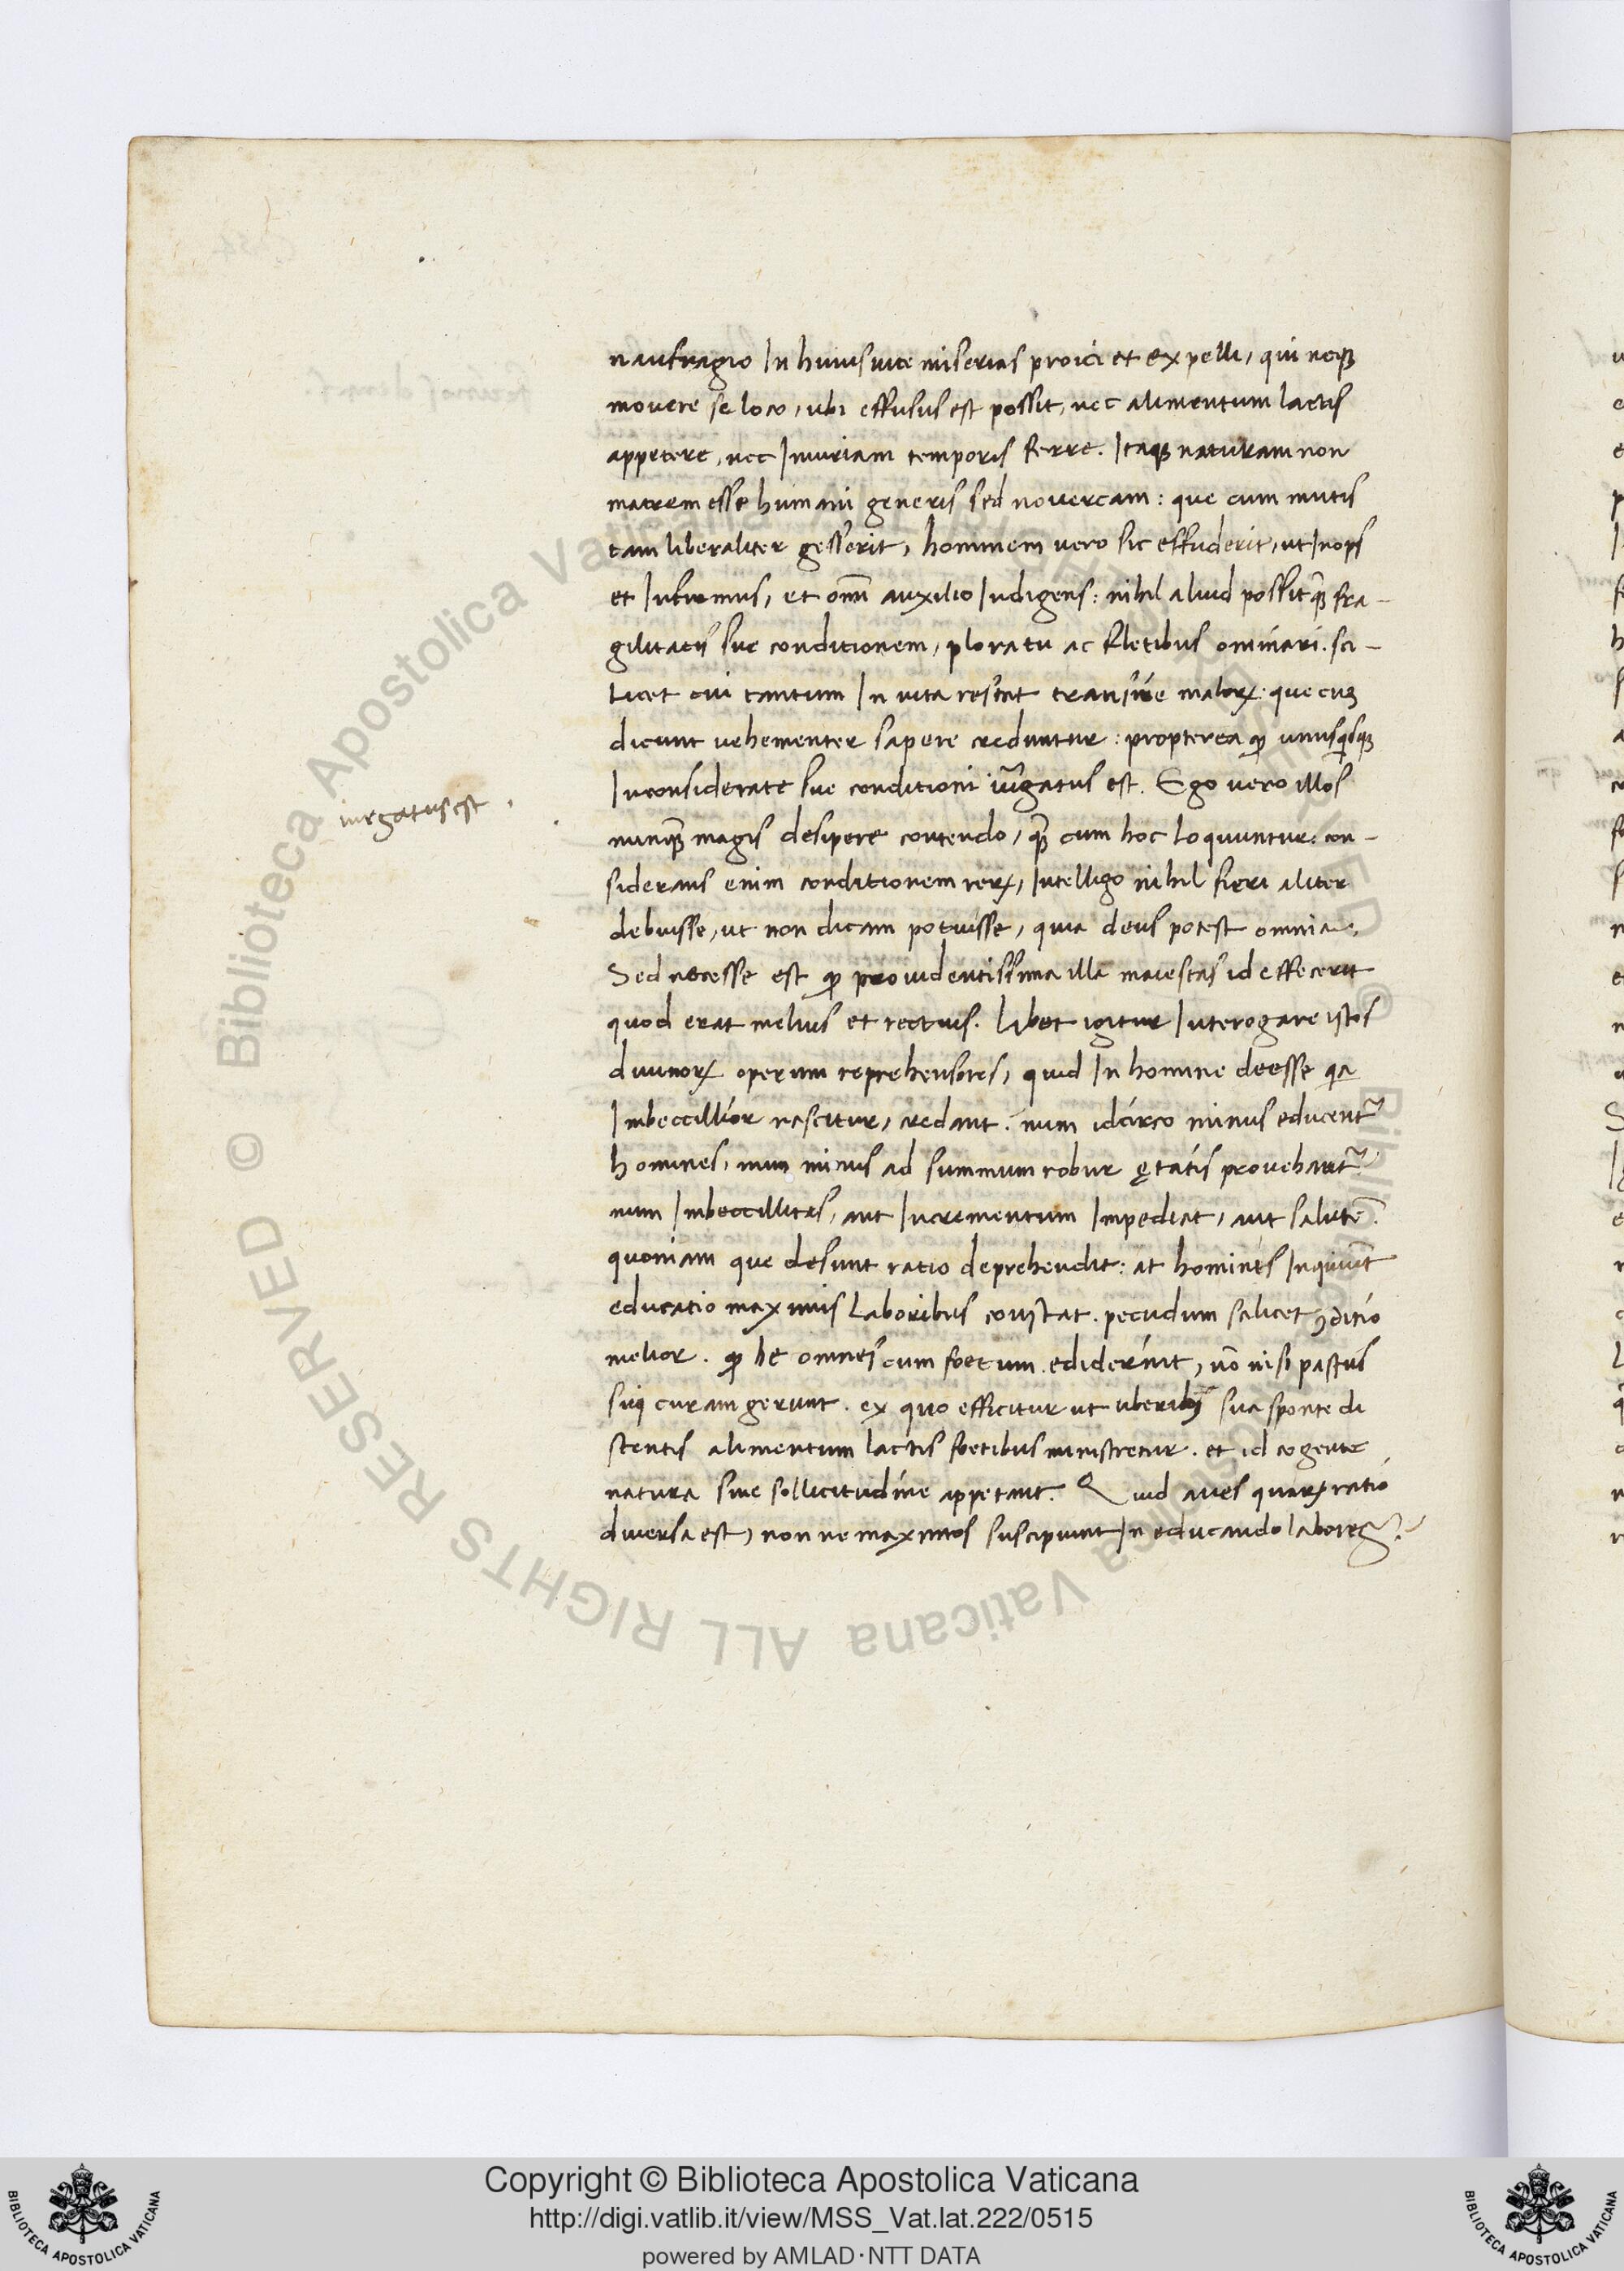 naufragio In huius uite miserias proici et expelli, qui neqȝ
mouere se loco, ubi effusus est possit, nec alimentum lactis
appetere, nec Iniuriam temporis ferre. Itaqȝ naturam non
matrem esse humani generis sed nouercam: que cum mutis
tam liberaliter gesserit, hominem uero sic effuderit, ut Inops
et Infirmus, et om̄i auxilio Indigens: nihil aliud possit qȝ̄ fra-
gilitatis sue conditionem, ploratu ac fletibus ominari. sci-
licet cui tantum In uita restat transire malorꝝ: que cuȝ
dicunt uehementer sapere creduntur: propterea ꝙ unusqisqȝ
Inconsiderate sue conditioni iur̃gatus est. Ego uero illos
nunqȝ̄ magis desipere contendo, qȝ̄ cum hoc loquuntur: con-
siderans enim conditionem rerꝝ, Intelligo nihil fieri aliter
debuisse, ut non dicam potuisse, quia deus potest omnia.
Sed necesse est ꝙ prouidentissima illa maiestas id effecerit
quod erat melius et rectius. Libet igitur Interogare istos
diuinorꝝ operum reprehensores, quid In homine deesse qa
Imbeccillior nascitur, credant. num idcirco minus educent᷑
homines, num minus ad summum robur ętatis prouehant᷑
num Imbeccillitas, aut Incrementum Impediat, aut salutē.
quoniam que desunt ratio deprehendit: at hominis Inquiūt
educatio maximis Laboribus constat. pecudum scilicet ꝯditio
melior. ꝙ he omnes cum foetum ediderint, nō nisi pastus
sui curam gerunt. ex quo efficitur ut uberibȝ sua sponte di
stentis alimentum lactis foetibus ministretur. et id cogente
natura sine sollicitudine appetant. Quid aues quarꝝ ratio
diuersa est, non ne maximos suscipiunt In educando labores?
iurgatus est.
Copyright © Biblioteca Apostolica Vaticana
http://digi.vatlib.it/view/MSS_Vat.lat.222/0515
powered by AMLAD·NTT DATA
BIBLIOTECA APOSTOLICA VATICANA
BIBLIOTECA APOSTOLICA VATICANA
© Biblioteca Apostolica Vaticana ALL RIGHTS RESERVED © Biblioteca Apostolica Vaticana ALL RIGHTS RESERVED